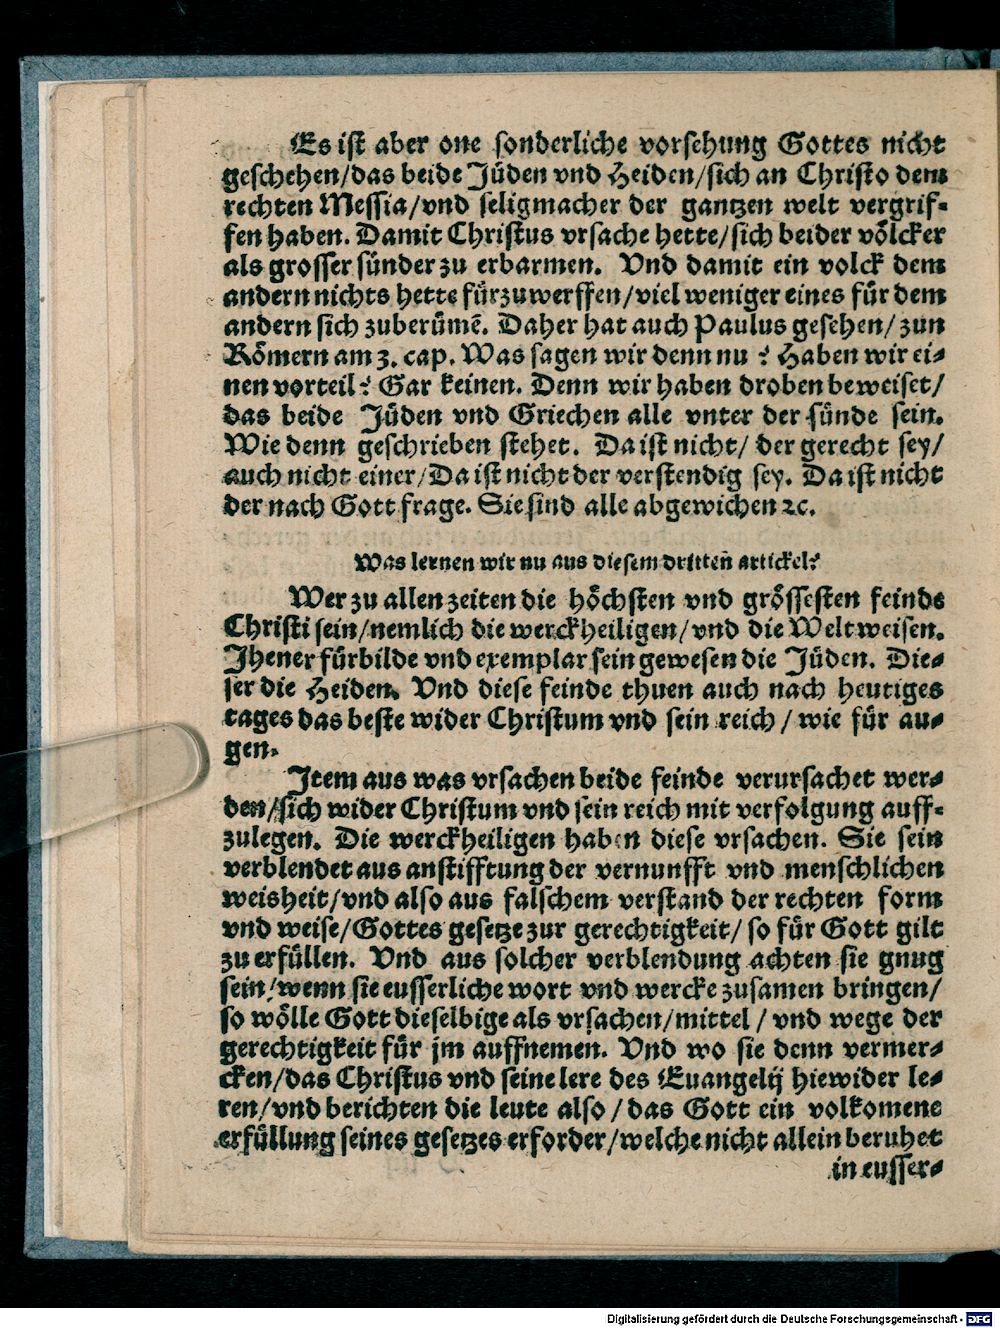 Es ist aber one sonderliche vorsehung Gottes nicht
geschehen/das beide Jüden vnd Heiden/sich an Christo dem
rechten Messia/vnd seligmacher der gantzen welt vergrif-
fen haben. Damit Christus vrsache hette/sich beider völcker
als grosser sünder zu erbarmen. Vnd damit ein volck dem
andern nichts hette fürzuwerffen/viel weniger eines für dem
andern sich zuberümē. Daher hat auch Paulus gesehen/zun
Römern am 3. cap. Was sagen wir denn nu? Haben wir ei-
nen vorteil? Gar keinen. Denn wir haben droben beweiset/
das beide Jüden vnd Griechen alle vnter der sünde sein.
Wie denn geschrieben stehet. Da ist nicht/ der gerecht sey/
auch nicht einer/Da ist nicht der verstendig sey. Da ist nicht
der nach Gott frage. Sie sind alle abgewichen ꝛc.
Was lernen wir nu aus diesem dritten artickel?
Wer zu allen zeiten die höchsten vnd grössesten feinde
Christi sein/nemlich die werckheiligen/vnd die Weltweisen.
Jhener fürbilde vnd exemplar sein gewesen die Jüden. Die-
ser die Heiden. Vnd diese feinde thuen auch nach heutiges
tages das beste wider Christum vnd sein reich / wie für au-
gen.
Jtem aus was vrsachen beide feinde verursachet wer-
den/sich wider Christum vnd sein reich mit verfolgung auff-
zulegen. Die werckheiligen haben diese vrsachen. Sie sein
verblendet aus anstifftung der vernunfft vnd menschlichen
weisheit/vnd also aus falschem verstand der rechten form
vnd weise/Gottes gesetze zur gerechtigkeit/ so für Gott gilt
zu erfüllen. Vnd aus solcher verblendung achten sie gnug
sein/wenn sie eusserliche wort vnd wercke zusamen bringen/
so wölle Gott dieselbige als vrsachen/mittel / vnd wege der
gerechtigkeit für jm auffnemen. Vnd wo sie denn vermer-
cken/das Christus vnd seine lere des Euangelij hiewider le-
ren/vnd berichten die leute also / das Gott ein volkomene
erfüllung seines gesetzes erforder/welche nicht allein beruhet
in eusser-
Digitalisierung gefördert durch die Deutsche Forschungsgemeinschaft - DFG